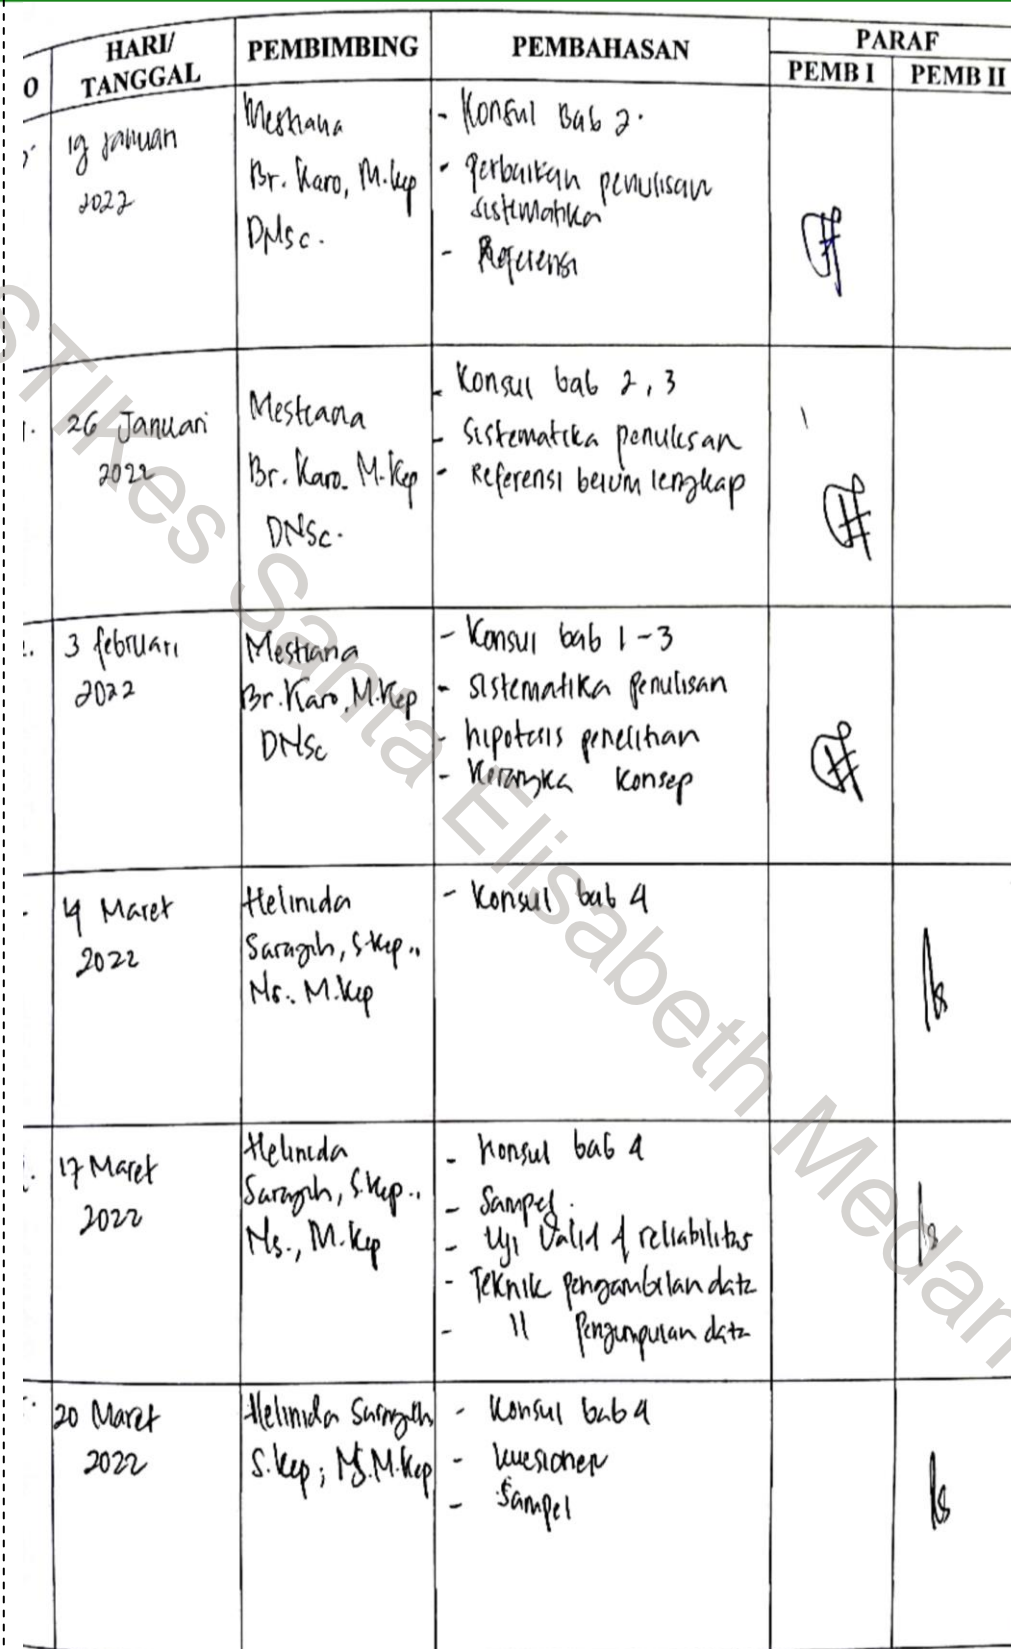 O HARI/ TANGGAL PEMBIMBING PEMBAHASAN PARAF
PEMB I PEMB II
19 Januari
2022
Mestiana
Br. Karo, M.Kep
DNSc.
- Konsul Bab 2.
- Perbaikan penulisan
sistematika
- Referensi
26 Januari
2022
Mestiana
Br. Karo. M.Kep
DNSc.
- Konsul bab 2, 3
- Sistematika penulisan
- Referensi belum lengkap
3 februari
2022
Mestiana
Br. Karo, M.Kep
DNSc
- Konsul bab 1-3
- sistematika penulisan
- hipotesis penelitian
- Kerangka Konsep
Maret
2022
Helinida
Saragih, S.Kep.,
Ns., M.Kep
- Konsul bab 4
17 Maret
2022
Helinida
Saragih, S.Kep.,
Ns., M.Kep
- Konsul bab 4
- Sampel.
- Uji Valid & reliabilitas
- Teknik pengambilan data
- 11 Pengumpulan data
20 Maret
2022
Helinida Saragih
S.Kep; Ns.M.Kep
- Konsul bab 4
- kuesioner
- Sampel
STIKes Santa Elisabeth Medan